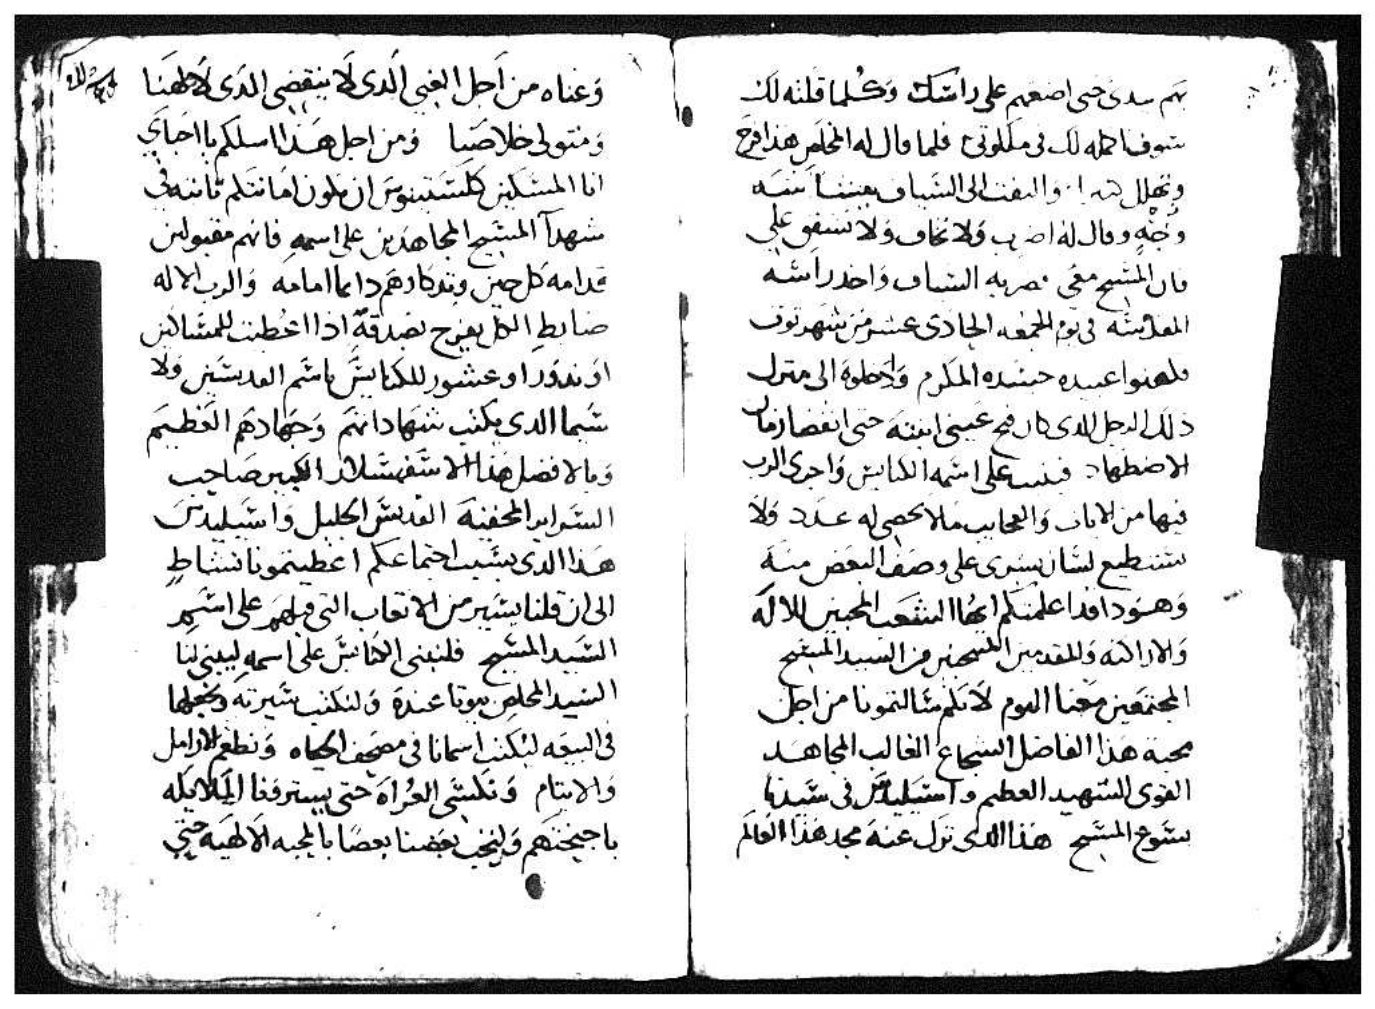 بهم بيدى حتى اضعهم على راسك وكلما قلته لك
سوف اكمله لك فى ملكوتى فلما قال له المخلص هذا فرح
وتهلل والتفت الى السياف بعينيا نفسه
وجهه وقال له اضرب ولا تخاف ولا تشفق على
فان المسيح معى فضربه السياف واخذ راسه
المقدسه فى يوم الجمعه الحادى عشر من شهر توت
فلهنوا عبيده جسده المكرم وادخلوه الى منزل
ذلك الرجل الذى كان فتح عينى ابنته حتى انقضا زمان
الاضطهاد فبنيت على اسمه الكنايس واجرى الرب
فيها من الايات والعجايب مالا يحصى له عدد ولا
يستطيع لسان بشرى على وصف البعض منه
وهوذا قد اعلمتكم ايها الشعب المحبين للاله
والاراخنه وللمقدمين المسيحيين من السيد المسيح
المجتمعين معنا اليوم لانكم سالتمونا من اجل
محبة هذا الفاضل الشجاع الغالب المجاهد
القوى الشهيد العظيم واسيليدس فى سيدنا
يسوع المسيح هذا الذى ترك عنه مجد هذا العالم
وغناه من اجل الغنى الذى لا ينقضى الذى لالهنا
ومتولى خلاصنا ومن اجل هذا اسلكم يا احباى
انا المسكين كلستينوس ان يكون امانتكم ثابته فى
شهدآ المسيح المجاهدين على اسمه فانهم مقبولين
قدامه كل حين وتذكارهم دايما امامه والرب الاله
ضابط الكل يفرح بصدقة اذا اعطيت للمساكين
او ندور او عشور للكنايس باسم القديسين ولا
سيما الذى يكتب شهاداتهم وجهادهم العظيم
وبالافضل هذا الاسفهسلار الكبير صاحب
السراير المخفيه القديس الجليل واسيليدس
هذا الذى بسبب اجتماعكم اعطيتمونا نشاط
الى ان قلنا يسير من الاتعاب التى قبلهم على اسم
السيد المسيح فلنبنى الكنايس على اسمه ليبنى لنا
السيد المخلص بيوتا عنده ولنكتب سيرته ونجعلها
فى البيعه ليكتب اسمانا فى مصحف الحياه ونطعم الارامل
والايتام ونكسى العراه حتى يسترفنا الملايكه
باجنحتهم وليحب بعضنا بعضا بالمحبه الالهيه حتى